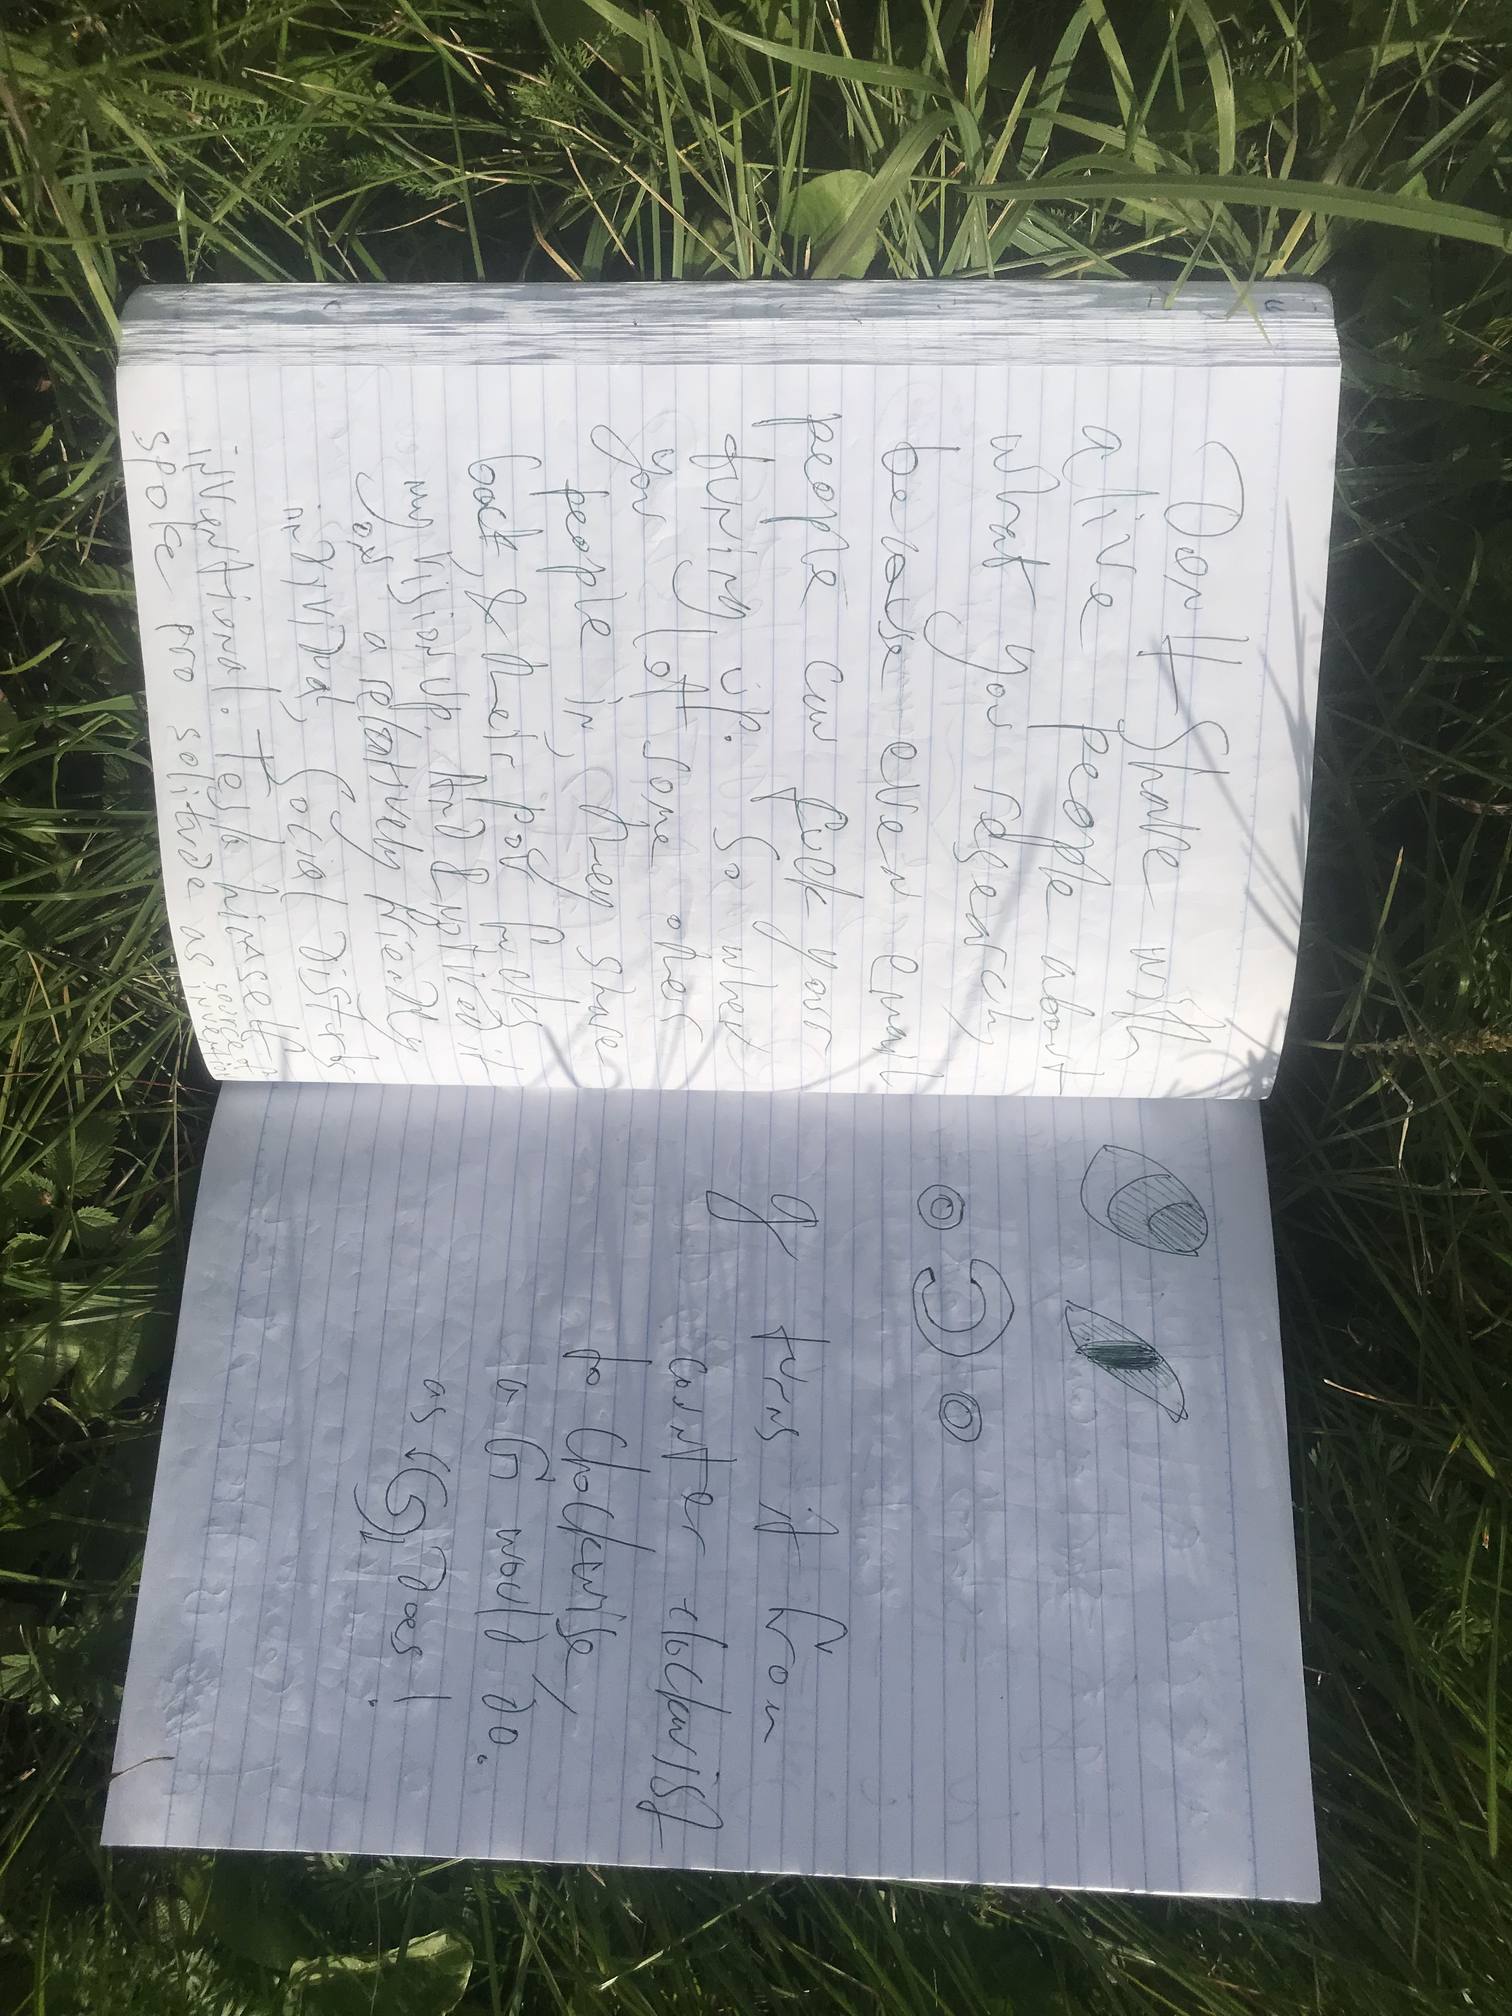 Don't Share with
alive people about
what you research,
because even email
people can fuck your
thing up. So when
you let some other
people in, they share
back, & their pot fucks
my vision up. And I noticed it
as a relatively friendly
individual, Social Disturbs
inventional. Tesla himself
spoke pro solitude as source of invention
g turns it from
counter-clockwise
to Clockwise,
a G would do.
as G does!